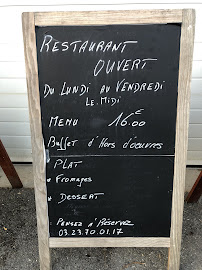 RESTAURANT
OUVERT
DU LUNDI AU VENDREDI
LE MIDI
MENU 16.00€
Buffet d'Hors d'oeuvres
PLAT
* Fromages
* DESSERT
PENSEZ À RÉSERVEZ
03.23.70.01.17